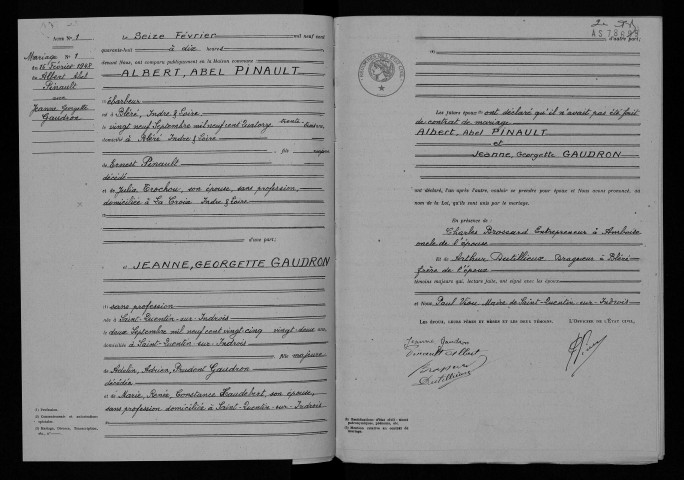 Acte N° 1
Mariage N° 1
du 16 Février 1948
de Albert Abel
Pinault
avec
Jeanne Georgette
Gaudron
Le Seize Février mil neuf cent
quarante-huit à dix heures
devant Nous, ont comparu publiquement en la Maison commune
ALBERT, ABEL PINAULT
ébarbeur
né à Bléré, Indre & Loire
le vingt neuf Septembre mil neuf cent quatorze trente-trois ans,
domicilié à Bléré Indre & Loire
fils majeur
de Ernest Pinault
décédé
et de Julia Trochou, son épouse, sans profession,
domiciliée à La Croix Indre & Loire
d'une part;
et JEANNE, GEORGETTE GAUDRON
(1) sans profession
née à Saint-Quentin-sur-Indrois
le deux Septembre mil neuf cent vingt-cinq vingt-deux ans,
domiciliée à Saint-Quentin sur Indrois
fille majeure
de Adelin, Adrien, Prudent Gaudron
décédé
et de Marie, Renée Constance Haudebert, son épouse,
sans profession domiciliée à Saint-Quentin-sur-Indrois
(1) Profession.
(3) Mariage, Divorce, Transcription,
etc., n°
AS78683
d'autre part,
(2)
Les futurs époux ont déclaré qu'il n'avait pas été fait
de contrat de mariage
Albert, Abel PINAULT
et
Jeanne, Georgette GAUDRON
ont déclaré, l'un après l'autre, vouloir se prendre pour époux et Nous avons prononcé, au
nom de la Loi, qu'ils sont unis par le mariage.
En présence de
Charles Brossard Entrepreneur à Amboise
oncle de l'épouse
Et de Arthur Dutillieux Dragueur à Bléré
frère de l'époux
témoins majeurs qui, lecture faite, ont signé avec les époux
et Nous, Paul Maire de Saint-Quentin-sur-Indrois
LES ÉPOUX, LEURS PÈRES ET MÈRES ET LES DEUX TÉMOINS, L'OFFICIER DE L'ÉTAT CIVIL,
Jeanne Gaudron
Pinault Albert
Brossard
Dutillieux